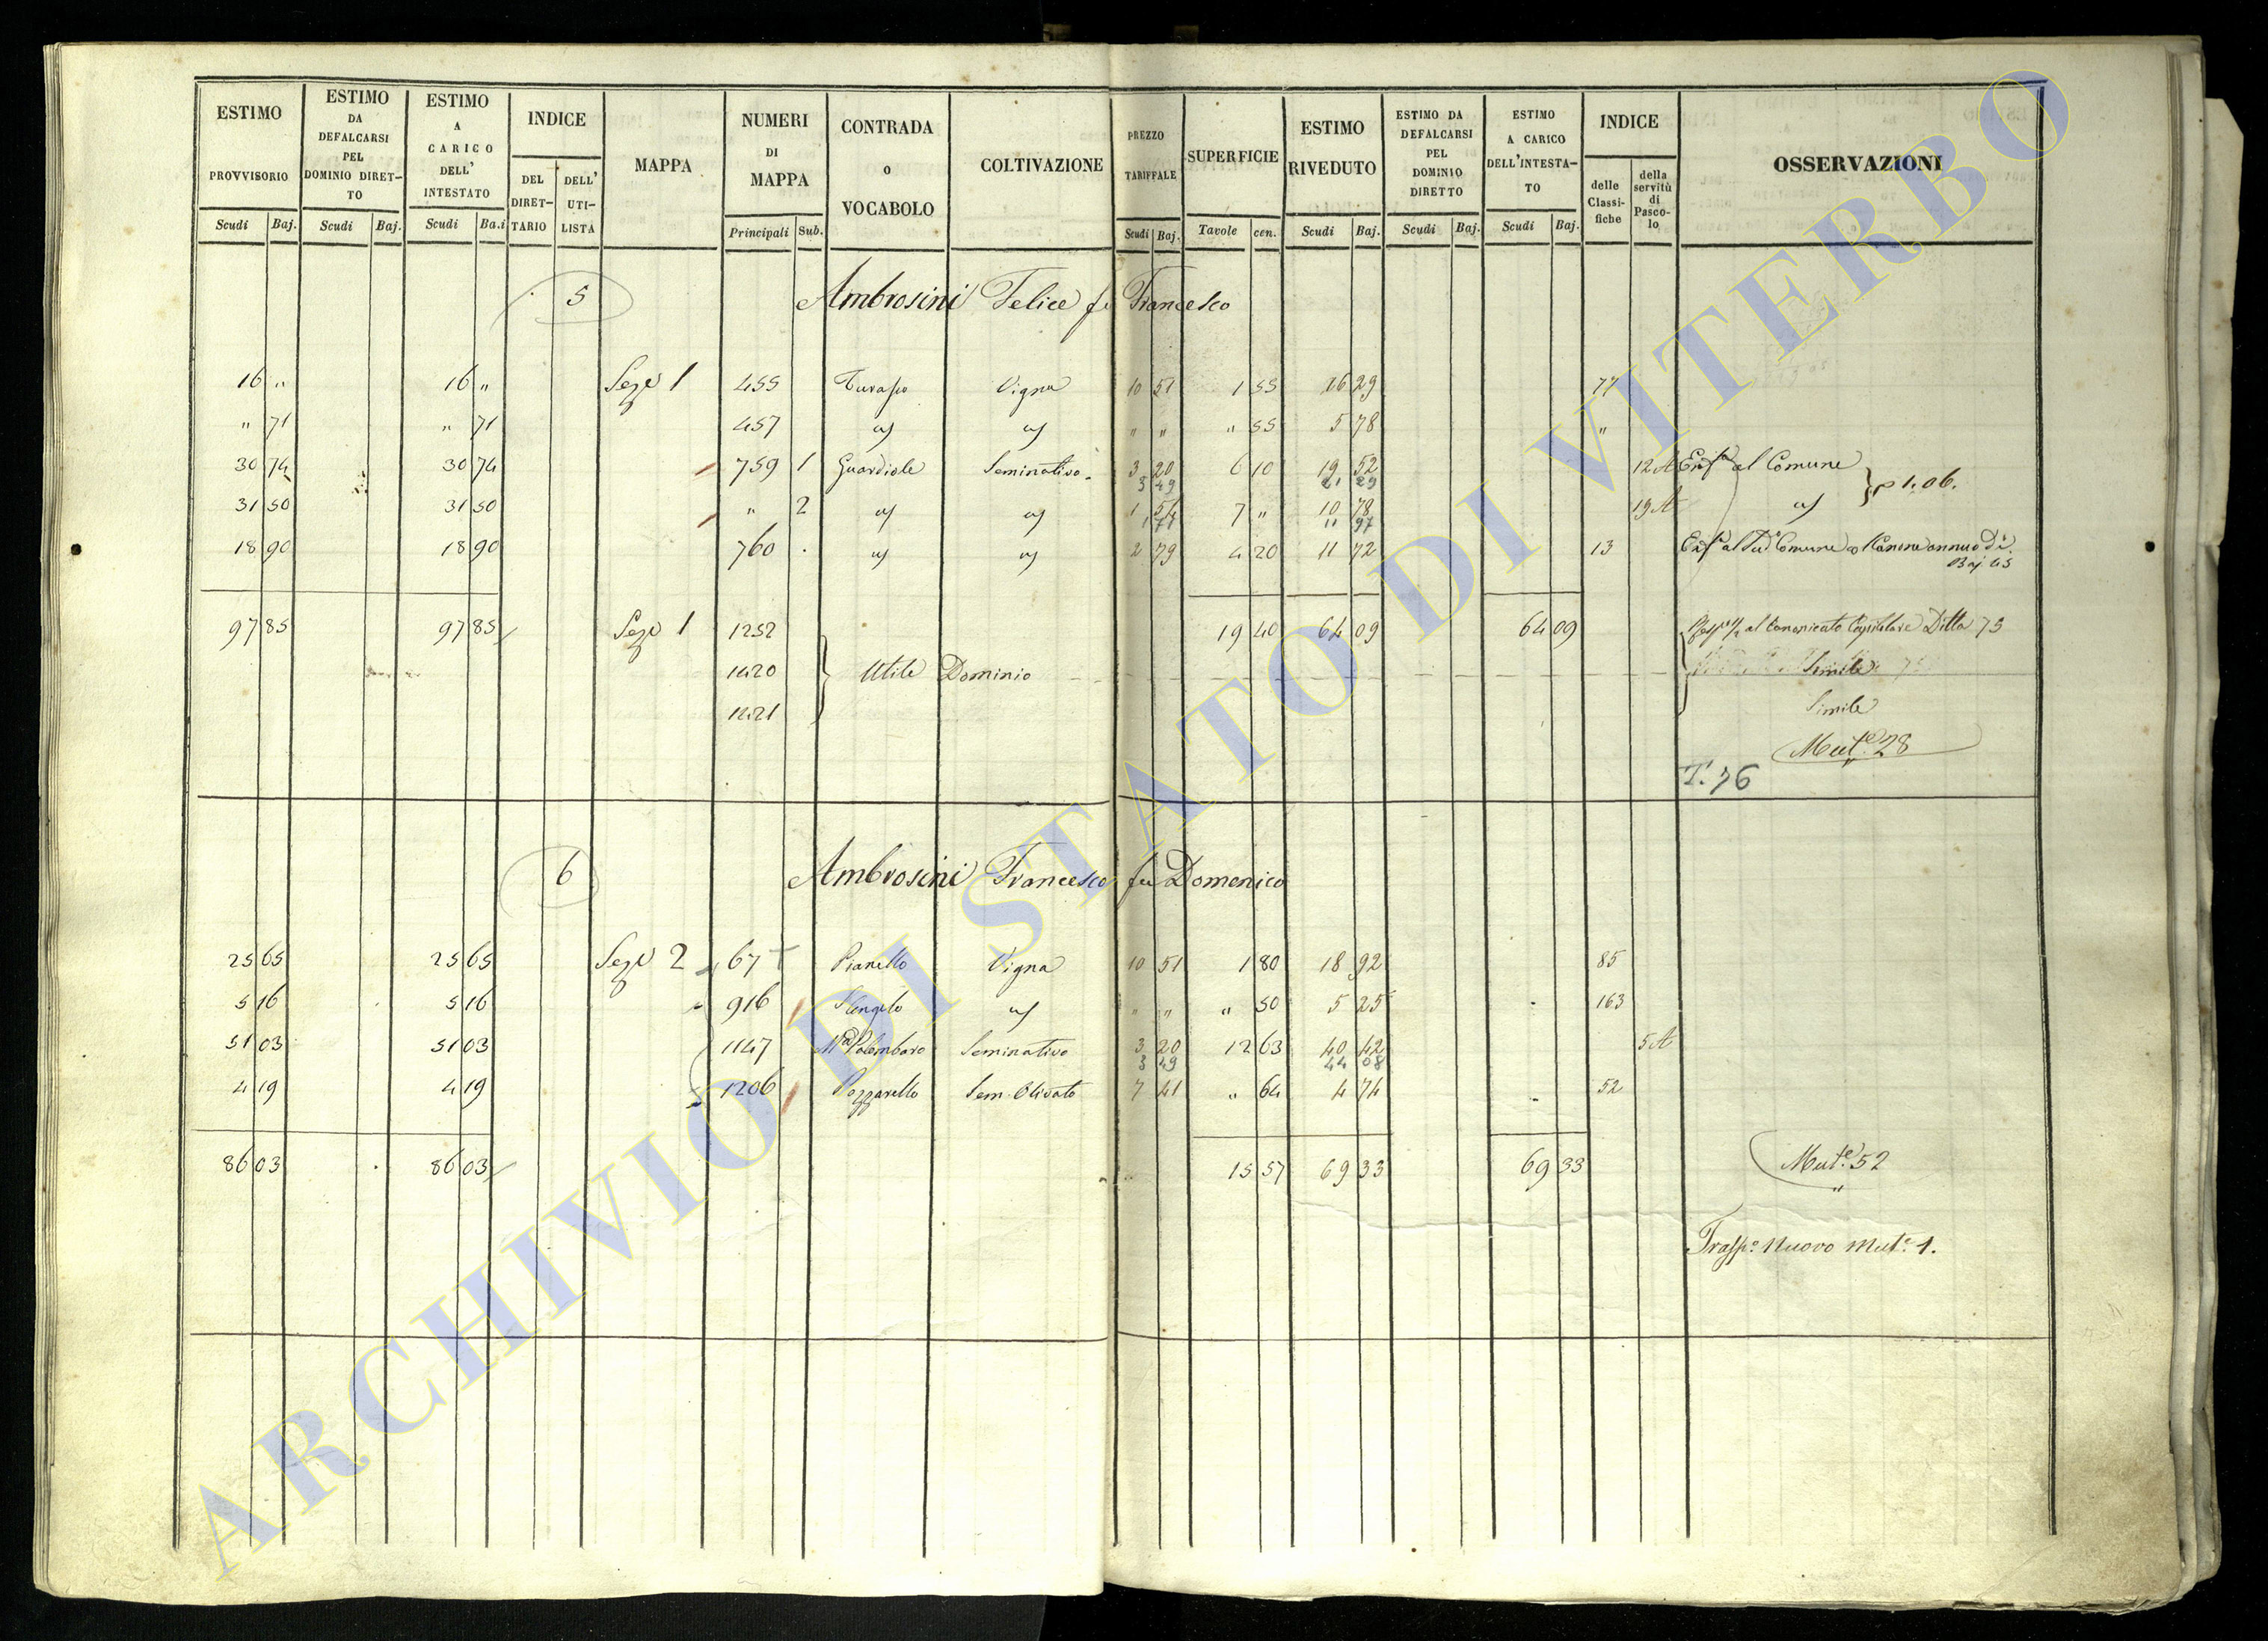 ESTIMO PROVVISORIO Scudi Baj.
ESTIMO DA DEFALCARSI PEL DOMINIO DIRETTO Scudi Baj.
ESTIMO A CARICO DELL' INTESTATO Scudi Ba.i
INDICE DEL DIRETTARIO DELL' UTILISTA
MAPPA
NUMERI DI MAPPA Principali Sub.
CONTRADA o VOCABOLO
COLTIVAZIONE
PREZZO TARIFFALE Scudi Baj.
SUPERFICIE Tavole cen.
ESTIMO RIVEDUTO Scudi Baj.
ESTIMO DA DEFALCARSI PEL DOMINIO DIRETTO Scudi Baj.
ESTIMO A CARICO DELL'INTESTATO Scudi Baj.
INDICE delle Classifiche della servitù di Pascolo
OSSERVAZIONI
5 Ambrosini Felice fu Francesco
16 " 16 " 1 455 Vigna 10 51 1 55 16 29 77
" 71 " 71 457 " " " 55 5 78 "
30 74 30 74 759 1 Guardiole Seminativo 3 20 6 10 19 52 12 A al Comune
3 49 21 29
31 50 31 50 " 2 1 54 7 " 10 78 19 A
1 71 11 97
1:06.
18 90 18 90 760 2 79 4 20 11 72 13 Comune Canone annuo di
Baj 45
97 85 97 85 1 1252 19 40 64 09 64 09 al Canonicato Ditta 75
1420 Utile Dominio Simile
1421 Simile
Mut.e 28
T. 76
6 Ambrosini Francesco fu Domenico
25 65 25 65 2 67 Pianello Vigna 10 51 1 80 18 92 85
5 16 5 16 916 S. Angelo " " " 50 5 25 163
51 03 51 03 1147 Palombaro Seminativo 3 20 12 63 40 42 5 A
3 49 44 08
4 19 4 19 1206 Pozzarello Sem. Olivato 7 41 " 64 4 74 52
86 03 86 03 15 57 69 33 69 33 Mut.e 52
Trasp.o Nuovo Mut.e 1.
ARCHIVIO DI STATO DI VITERBO